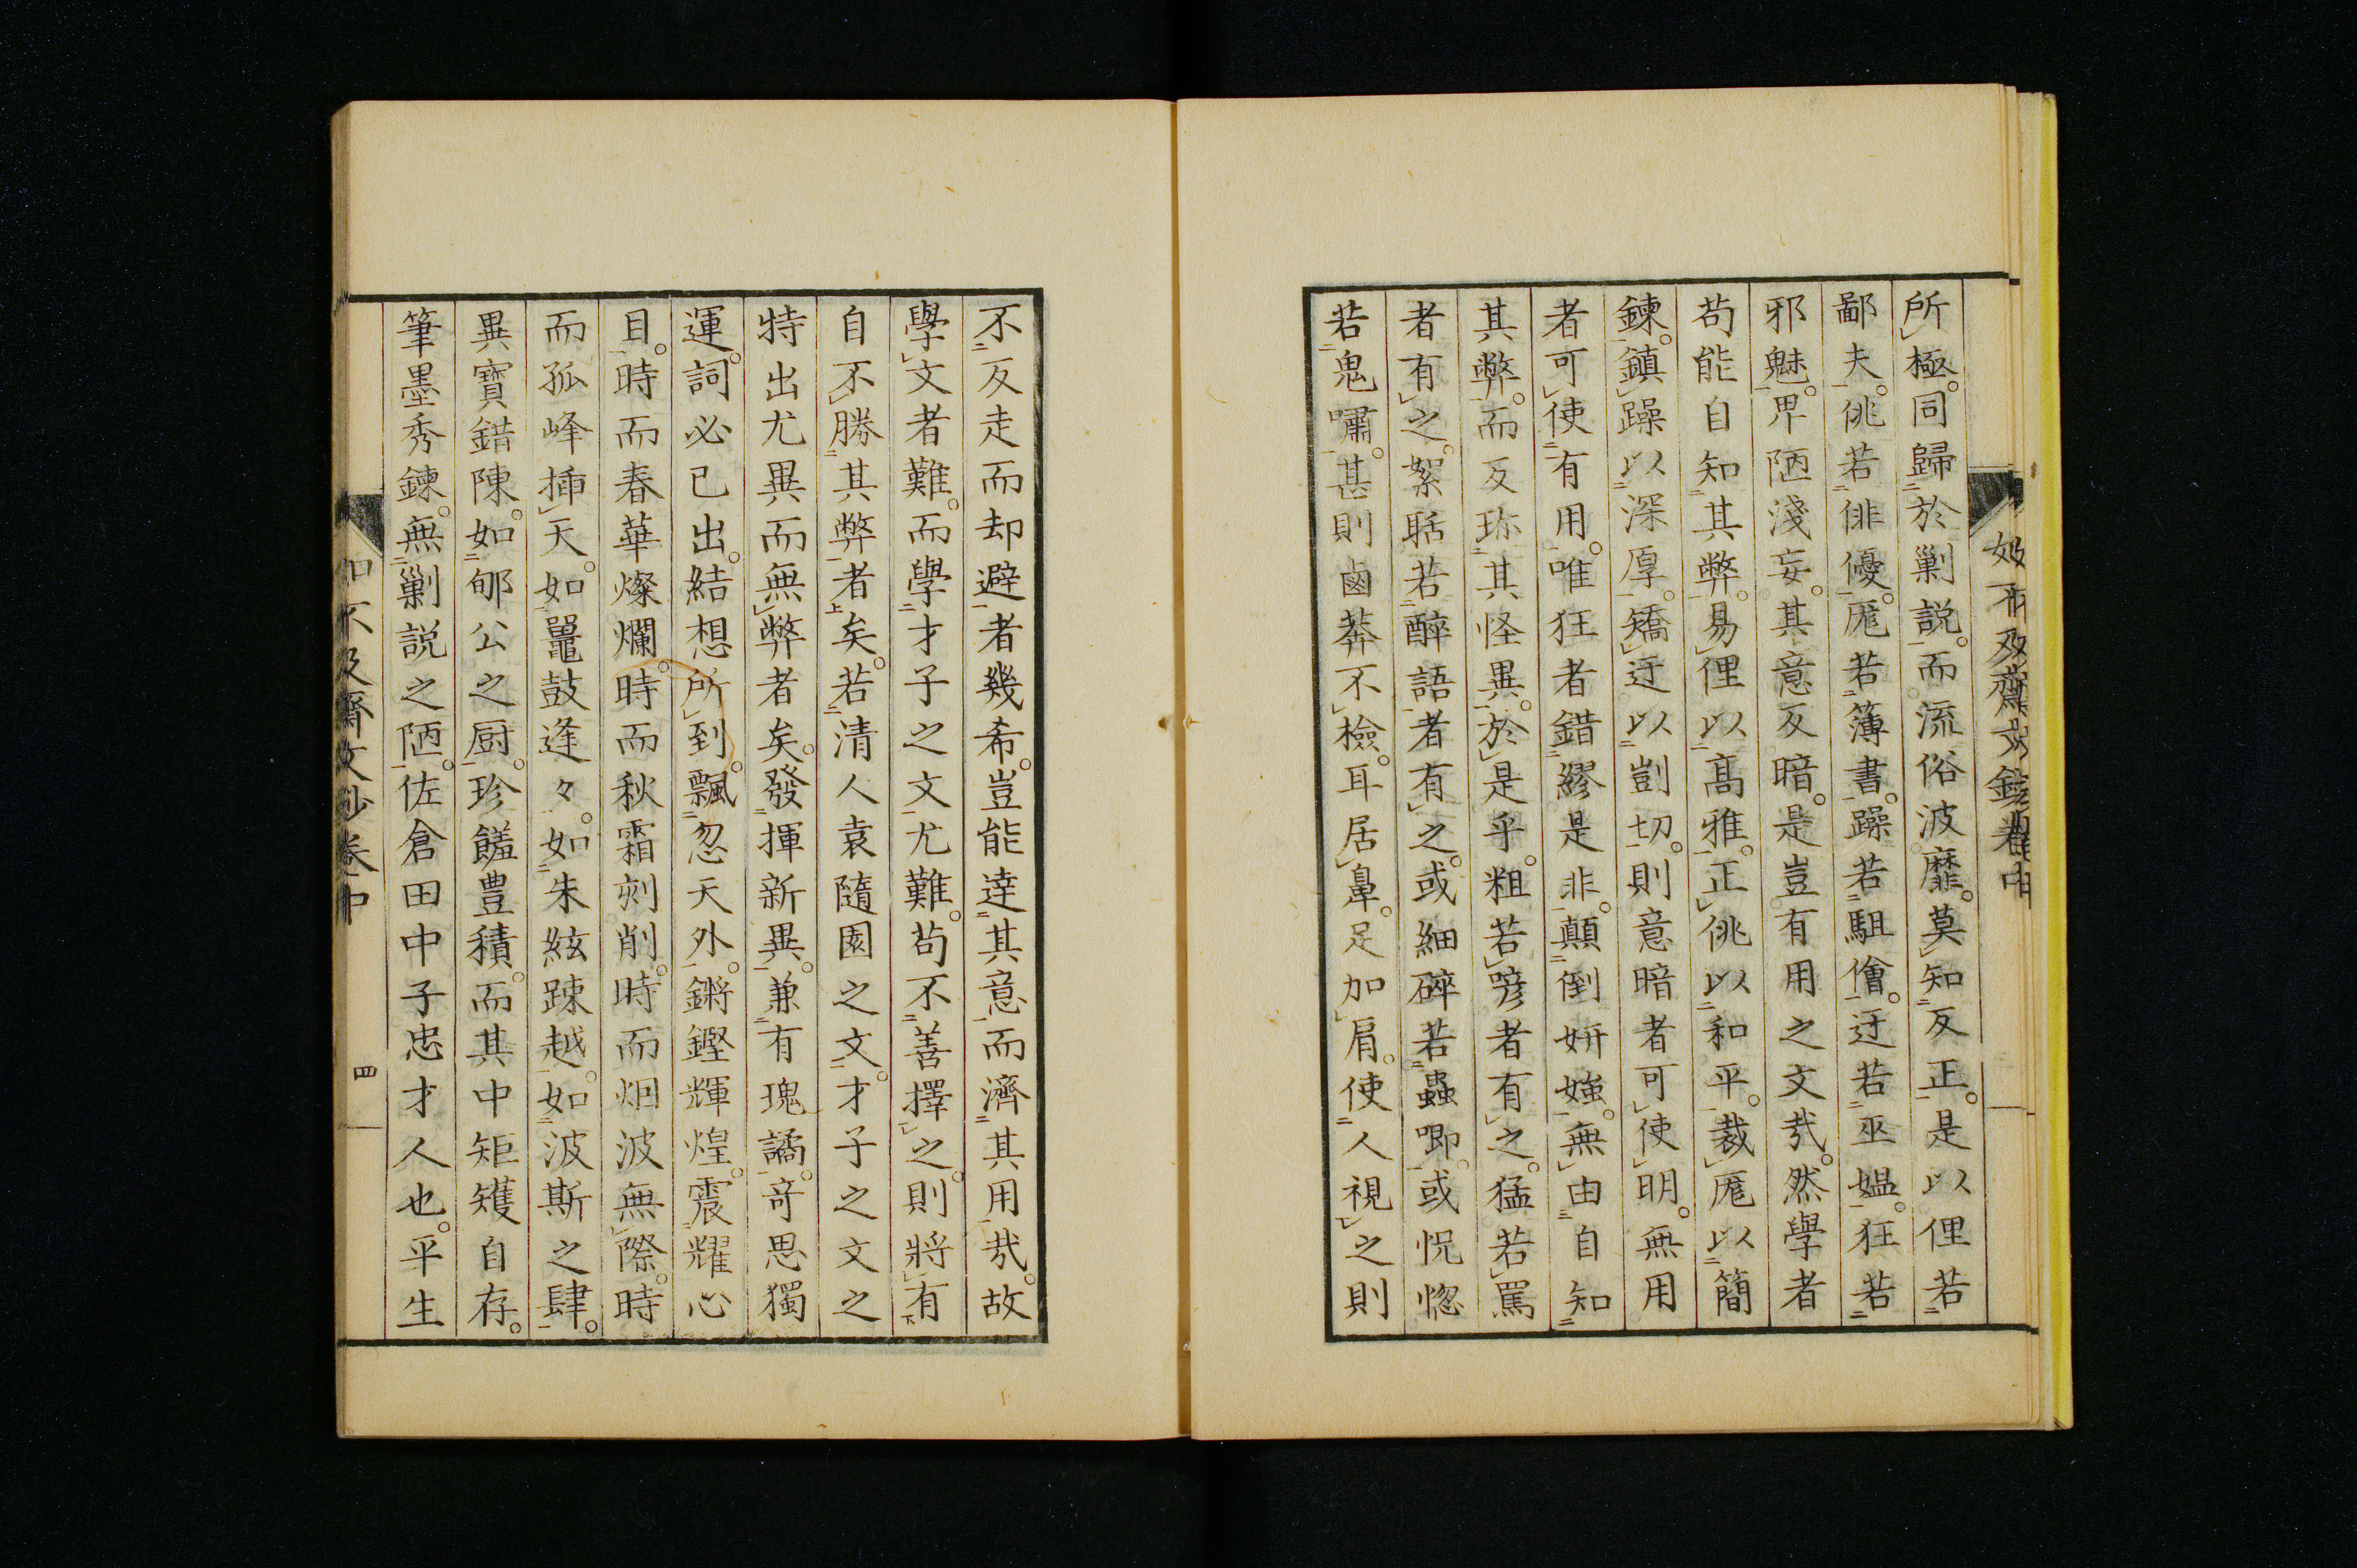 所極。同歸於剿説。而流俗波靡。莫知反正。是以俚若
鄙夫。佻若俳優。厖若簿書。躁若駔儈。迂若巫媼。狂若
邪魅。卑陋淺妄。其意反暗。是豈有用之文哉。然學者
苟能自知其弊。易俚以高雅。正佻以和平。裁厖以簡
鍊。鎮躁以深厚。矯迂以剴切。則意暗者可使明。無用
者可使有用。唯狂者錯繆是非。顛倒妍媸。無由自知
其弊。而反珎其怪異。於是乎。粗若喭者有之。猛若罵
者有之。絮聒若醉語者有之。或細碎若蟲喞。或怳惚
若鬼嘯。甚則鹵莽不檢。耳居鼻。足加肩。使人視之則
不反走而却避者幾希。豈能達其意而濟其用哉。故
學文者難。而學才子之文尤難。苟不善擇之。則將有
自不勝其弊者矣。若清人袁隨園之文。才子之文之
特出尤異而無弊者矣。發揮新異。兼有瑰譎。奇思獨
運。詞必已出。結想所到。飄忽天外。鏘鏗輝煌。震耀心
目。時而春華燦爛。時而秋霜刻削。時而烟波無際。時
而孤峰挿天。如鼉鼓逢々。如朱絃踈越。如波斯之肆。
異寶錯陳。如郇公之厨。珍饈豊積。而其中矩矱自存。
筆墨秀鍊。無剿説之陋。佐倉田中子忠才人也。平生
如不及齋文鈔卷中
四